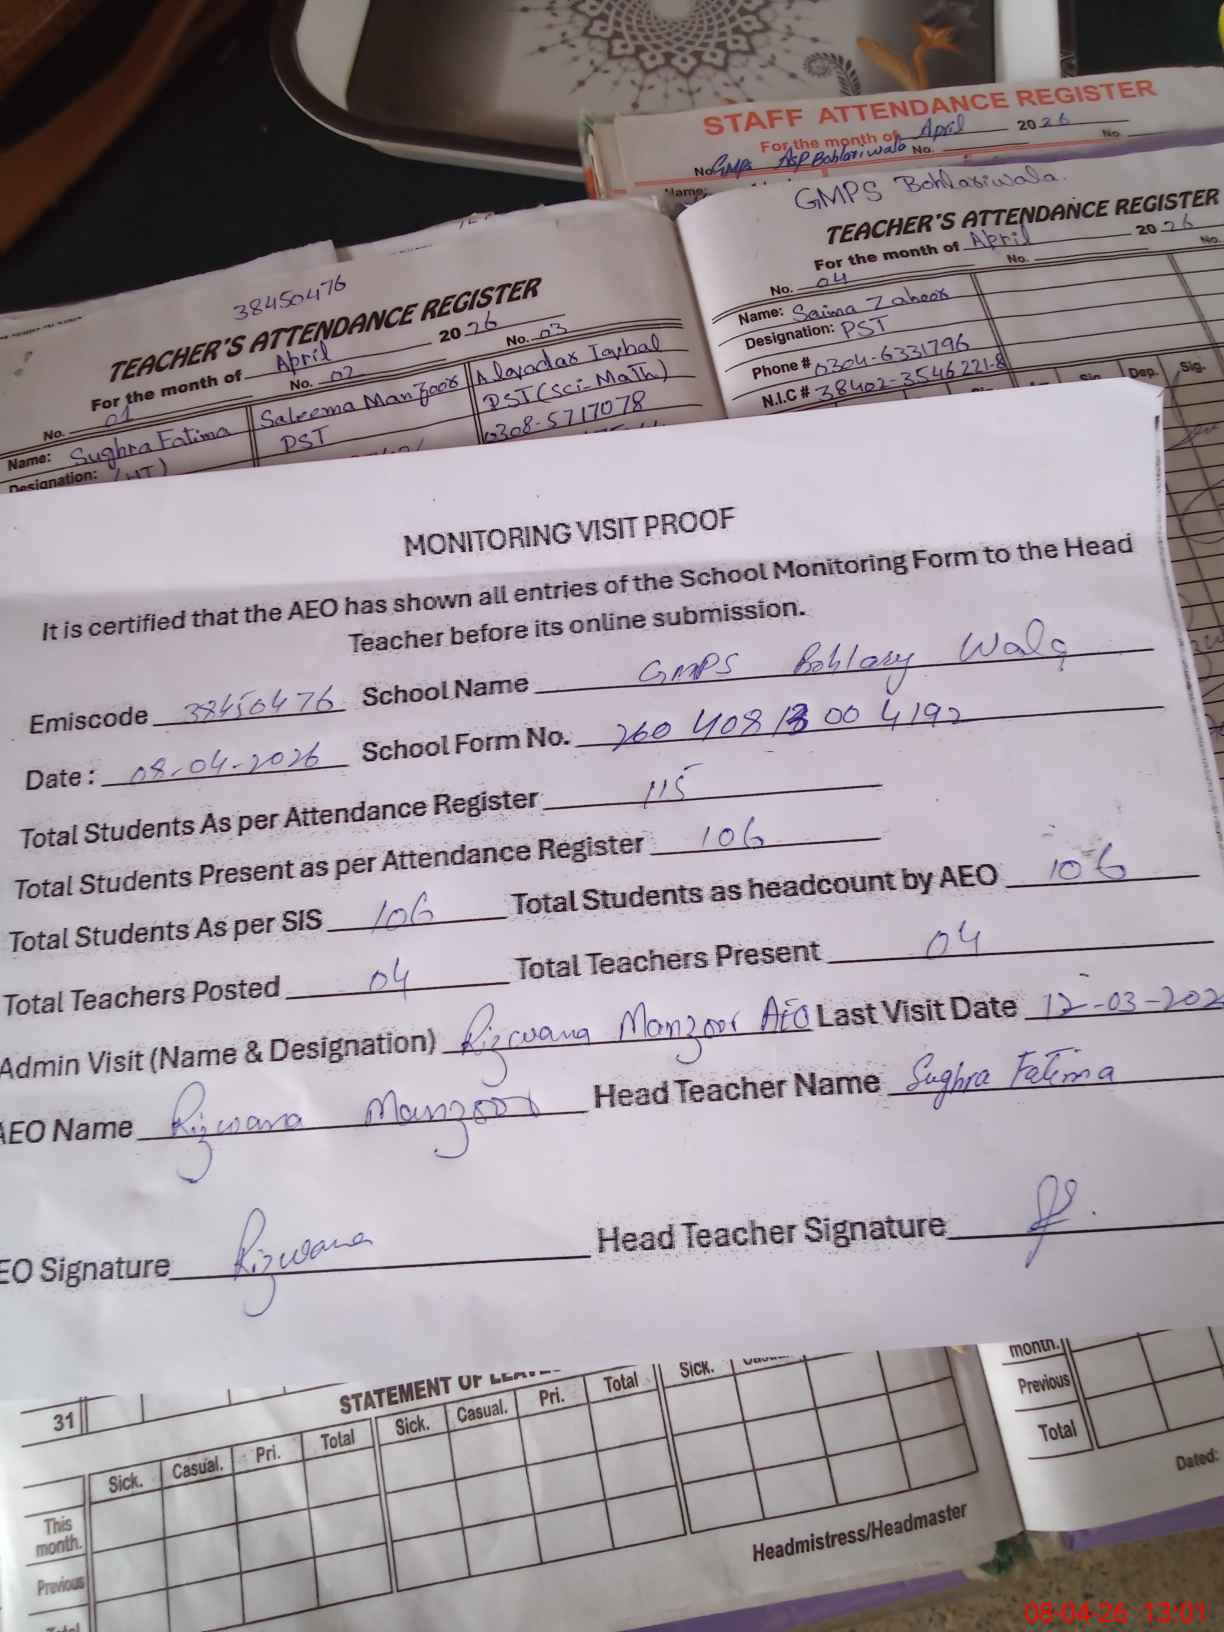 STAFF ATTENDANCE REGISTER
For the month of April 2026
No. GMPS ASP Bohlariwala No. No.
Name:
GMPS Bohlariwala.
TEACHER'S ATTENDANCE REGISTER
For the month of April 2026
No. 04 No. No.
Name: Saima Zahoor
Designation: PST
Phone # 0304-6331796
N.I.C # 38402-3546221-8
Sig. Dep. Sig.
38450476
TEACHER'S ATTENDANCE REGISTER
For the month of April 2026
No. 01 No. 02 No. 03
Name: Sughra Fatima Saleema Manzoor Iqbal
Designation: (HT) PST PST (Sci-Math)
0308-5717078
MONITORING VISIT PROOF
It is certified that the AEO has shown all entries of the School Monitoring Form to the Head
Teacher before its online submission.
Emiscode 38450476 School Name GMPS Bohlary Wala
Date : 08-04-2026 School Form No. 260408 13 00 4192
Total Students As per Attendance Register 115
Total Students Present as per Attendance Register 106
Total Students As per SIS 106 Total Students as headcount by AEO 106
Total Teachers Posted 04 Total Teachers Present 04
Admin Visit (Name & Designation) Rizwana Manzoor AEO Last Visit Date 12-03-202
AEO Name Rizwana Manzoor Head Teacher Name Sughra Fatima
EO Signature Rizwana Head Teacher Signature
31
STATEMENT OF LEAVE
Sick. Casual. Pri. Total Sick. Casual. Pri. Total Sick.
This month.
Previous
Total
Headmistress/Headmaster
month.
Previous
Total
Dated:
08-04-26 13:01